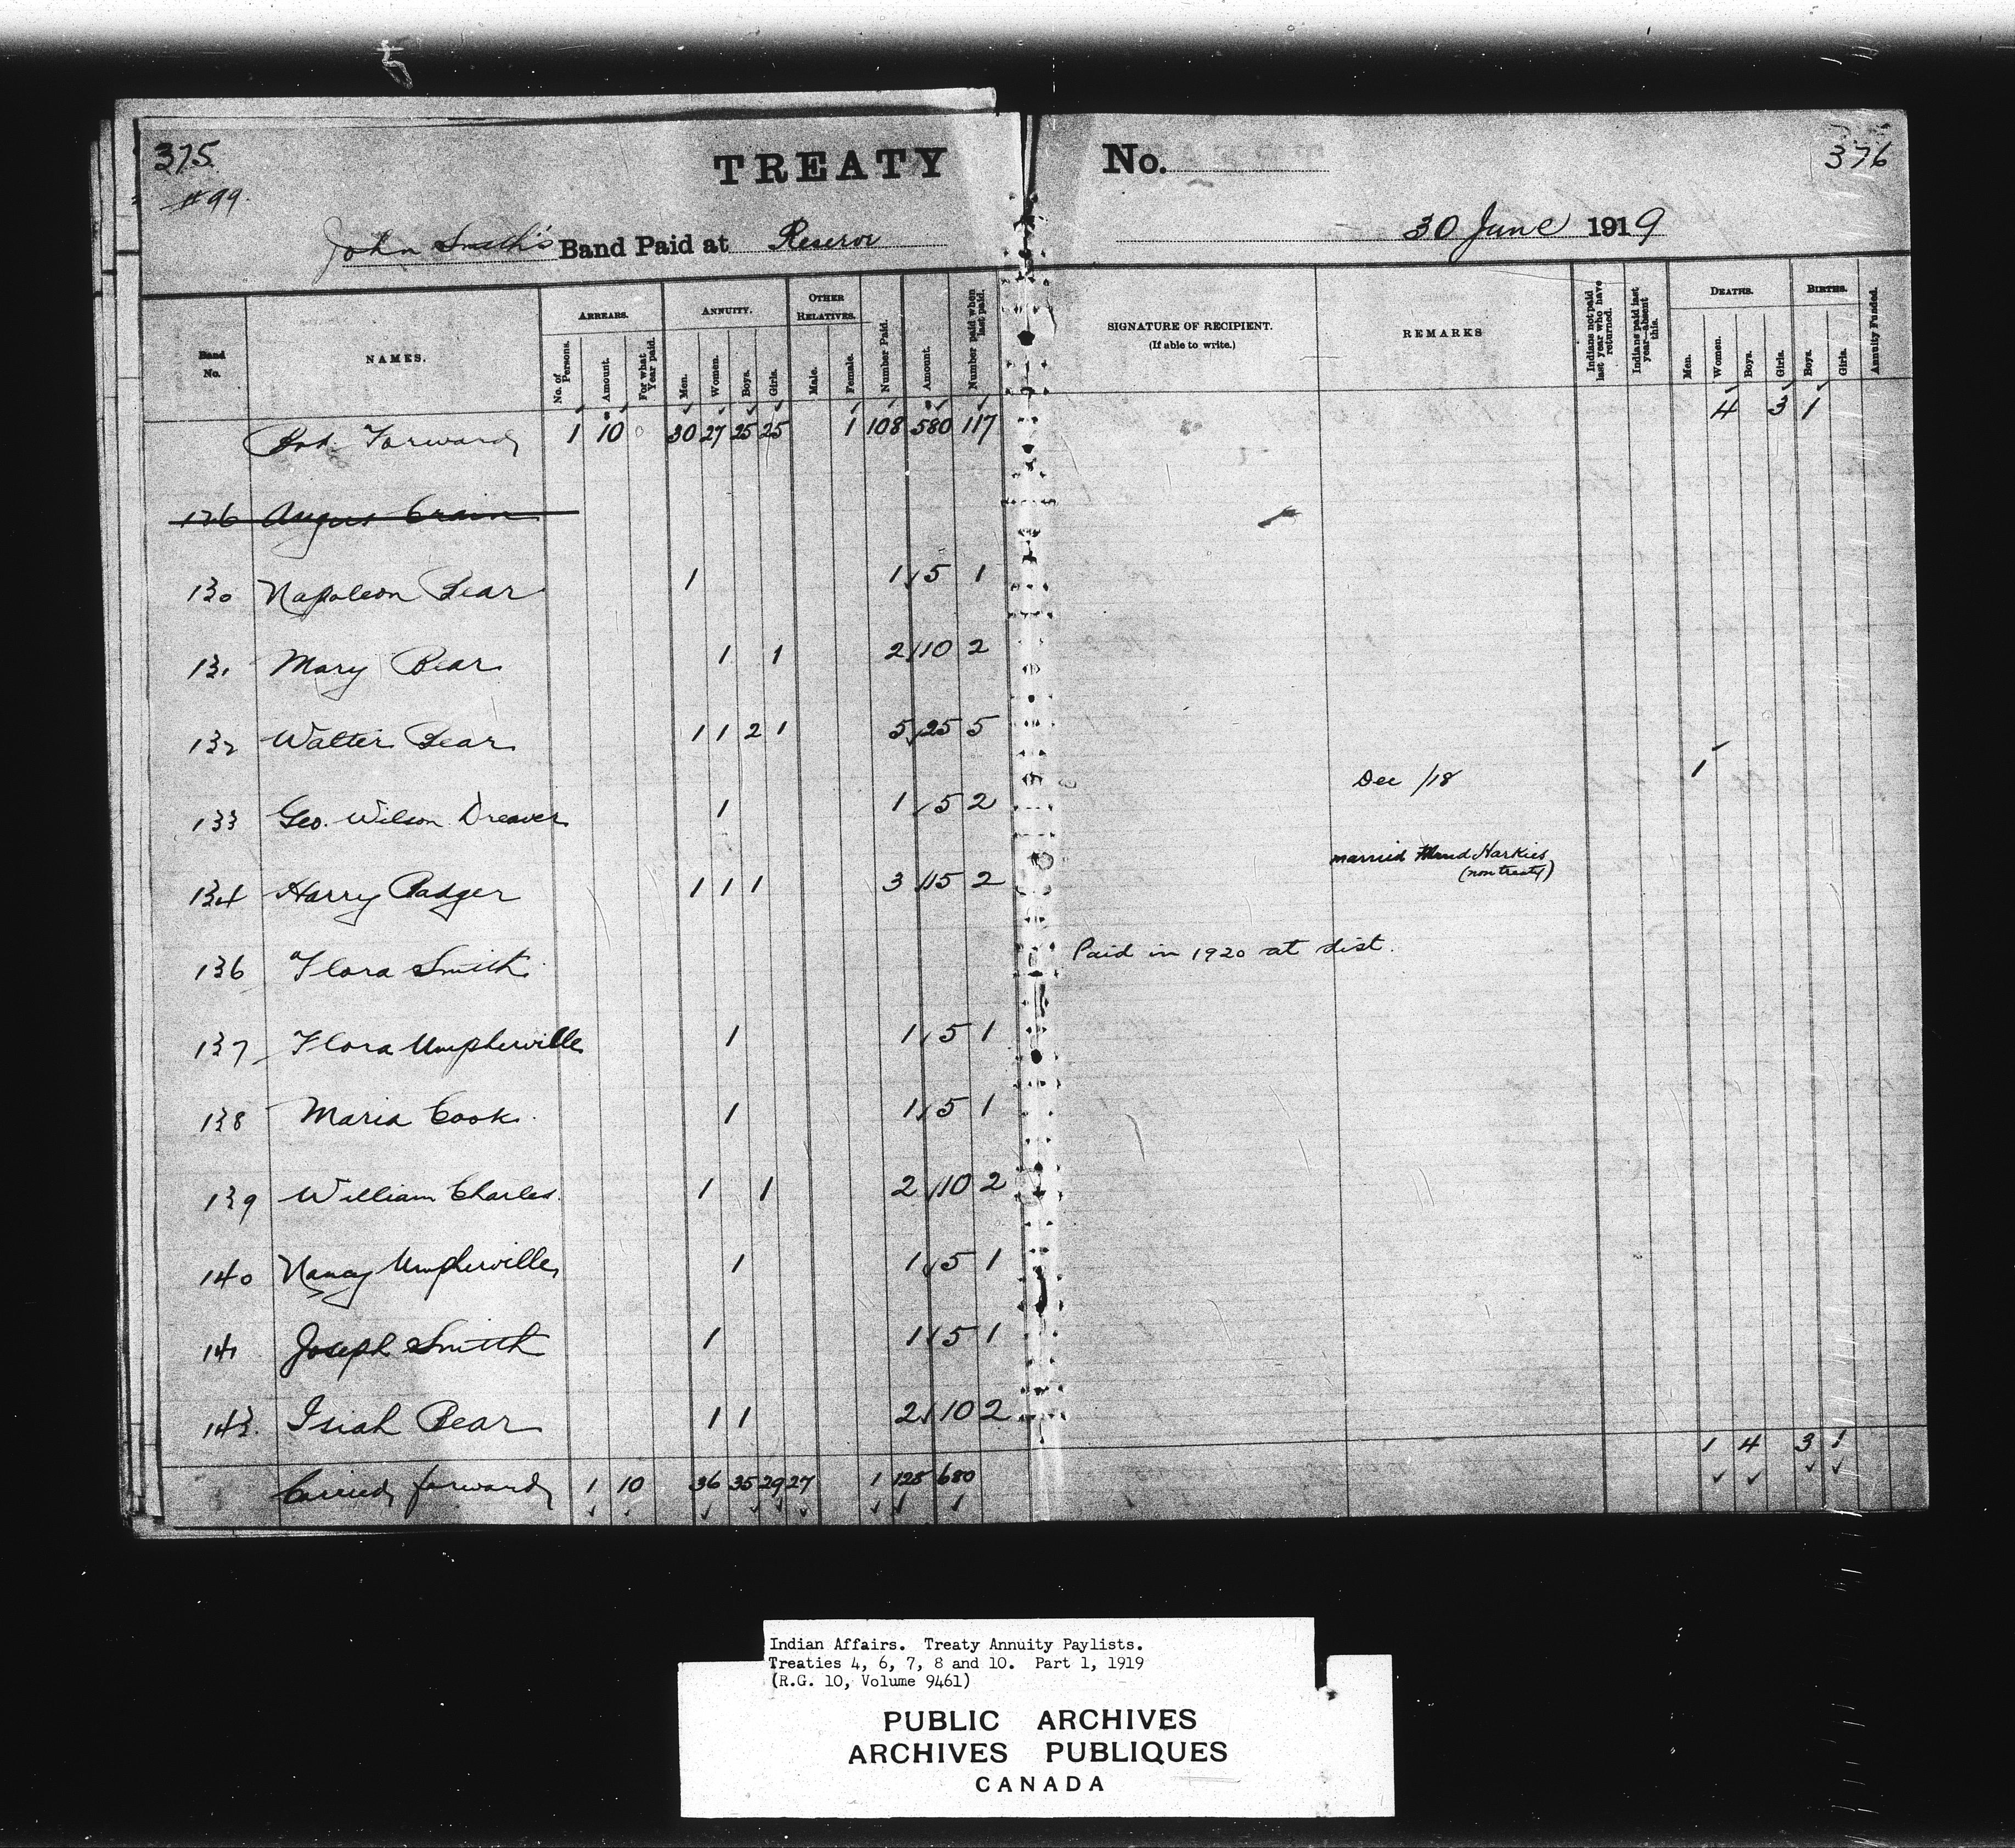 375. 376
#99.
TREATY No.
John Smith's Band Paid at Reserve 30 June 1919
Band No. NAMES. ARREARS. No. of Persons. Amount. For what Year paid. ANNUITY. Men. Women. Boys. Girls. OTHER RELATIVES. Male. Female. Number Paid. Amount. Number paid when last paid. SIGNATURE OF RECIPIENT. (If able to write.) REMARKS Indians not paid last year who have returned. Indians paid last year—absent this. DEATHS. Men. Women. Boys. Girls. BIRTHS. Boys. Girls. Annuity Funded.
Forward 1 10 30 27 25 25 1 108 580 117 4 3 1
126 Angus Crain
130 Napoleon Bear 1 1 5 1
131 Mary Bear 1 1 2 10 2
132 Walter Bear 1 1 2 1 5 25 5
133 Geo. Wilson Dreaver 1 1 5 2 Dec /18 1
134 Harry Badger 1 1 1 3 15 2 married Harkies (non treaty)
136 Flora Smith Paid in 1920 at dist.
137 Flora Umpherville 1 1 5 1
138 Maria Cook 1 1 5 1
139 William Charles 1 1 2 10 2
140 Nancy Umpherville 1 1 5 1
141 Joseph Smith 1 1 5 1
143. Isiah Bear 1 1 2 10 2
Carried forward 1 10 36 35 29 27 1 128 680 1 4 3 1
Indian Affairs. Treaty Annuity Paylists.
Treaties 4, 6, 7, 8 and 10. Part 1, 1919
(R.G. 10, Volume 9461)
PUBLIC ARCHIVES
ARCHIVES PUBLIQUES
CANADA